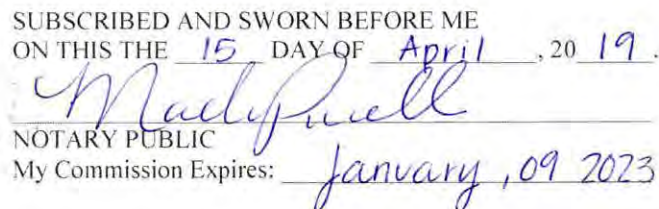 SUBSCRIBED AND SWORN BEFORE ME
ON THIS THE 15 DAY OF April, 20 19.
NOTARY PUBLIC
My Commission Expires: January, 09 2023